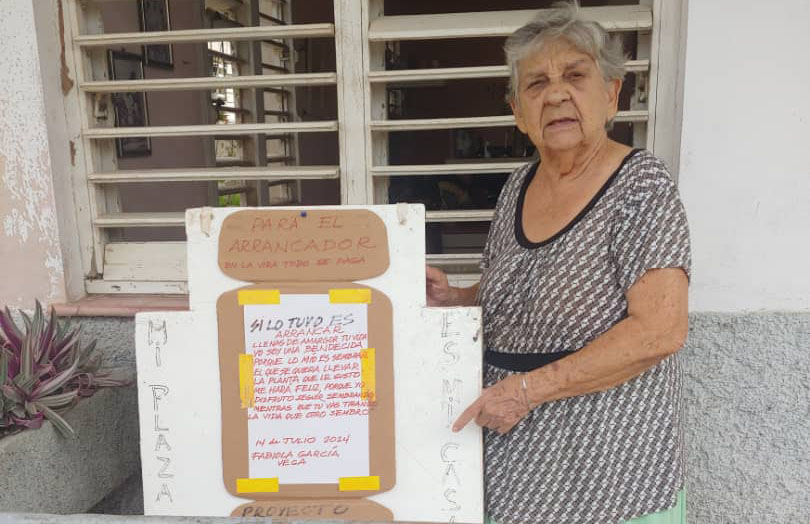 PARA EL
ARRANCADOR
EN LA VIDA TODO SE PAGA
SI LO TUYO ES
ARRANCAR
LLENAS DE AMARGOR TU VIDA
YO SOY UNA BENDECIDA
PORQUE LO MIO ES SEMBRAR
EL QUE SE QUIERA LLEVAR
LA PLANTA QUE LE GUSTO
ME HARÁ FELIZ, PORQUE YO
DISFRUTO SEGUIR SEMBRANDO
MIENTRAS QUE TU VAS TIRANDO
LA VIDA QUE OTRO SEMBRO
14 de JULIO 2024
FABIOLA GARCÍA
VEGA
PROYECTO
MI PLAZA
ES MI CASA